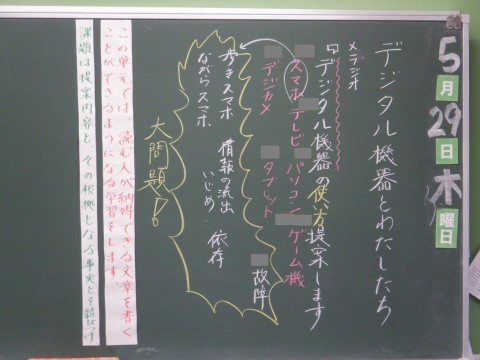 5月29日木曜日
デジタル機器とわたしたち
メデジオ
デジタル機器の使い方提案します
スマホ テレビ パソコン ゲーム機
デジカメ タブレット
故障
歩きスマホ 情報の流出 依存
ながらスマホ いじめ
大問題!!
この単元では、読む人が納得できる文章を書く
ことができるようになる学習をします。
課題は提案内容と、その根拠となる事実とを結びつけ